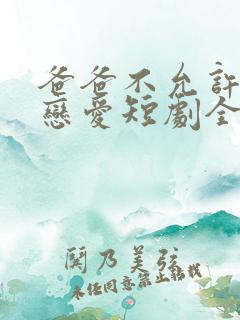 爸爸不允許
戀愛短劇全
閱乃美弦
未經同意禁止轉載